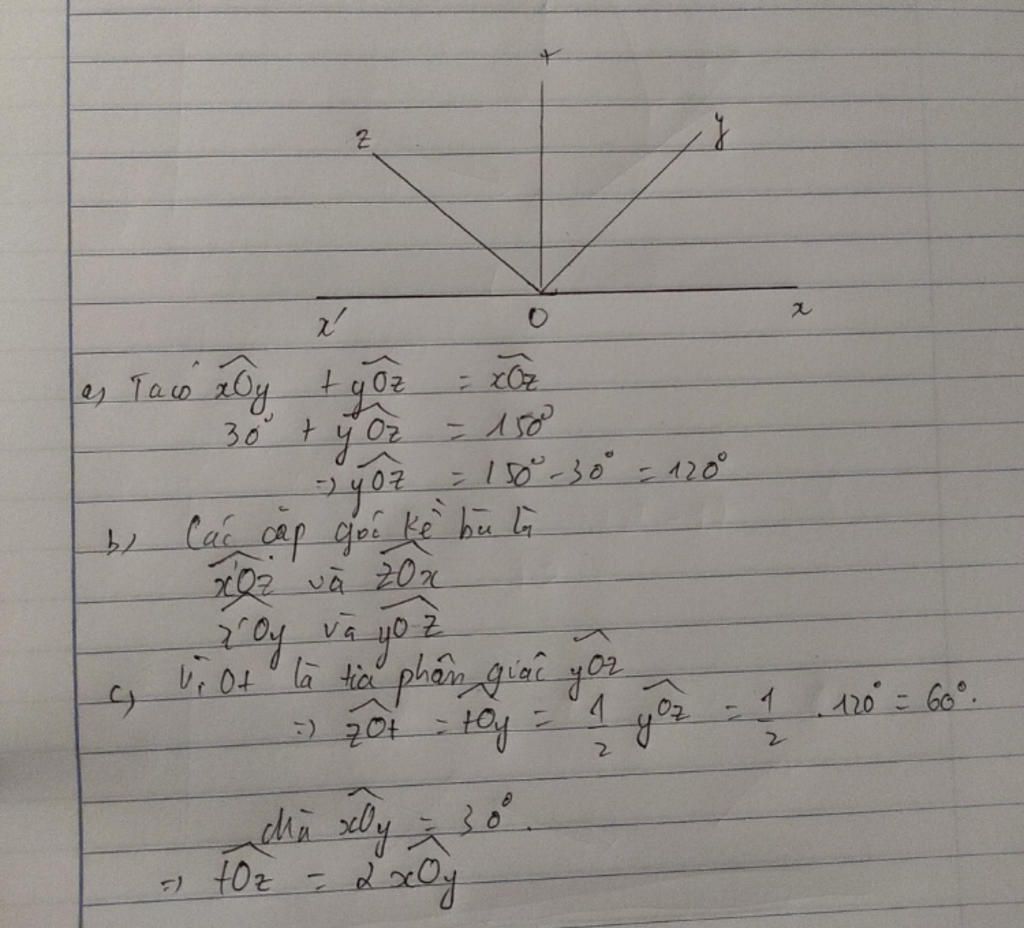 t
z
y
x'
O
x
a) Ta có xOy + yOz = xOz
30° + yOz = 150°
=> yOz = 150° - 30° = 120°
b) Các cặp góc kề bù là
x'Oz và zOx
x'Oy và yOz
c) Vì Ot là tia phân giác yOz
=> zOt = tOy = 1/2 yOz = 1/2 . 120° = 60°.
Mà xOy = 30°.
=> tOz = 2xOy